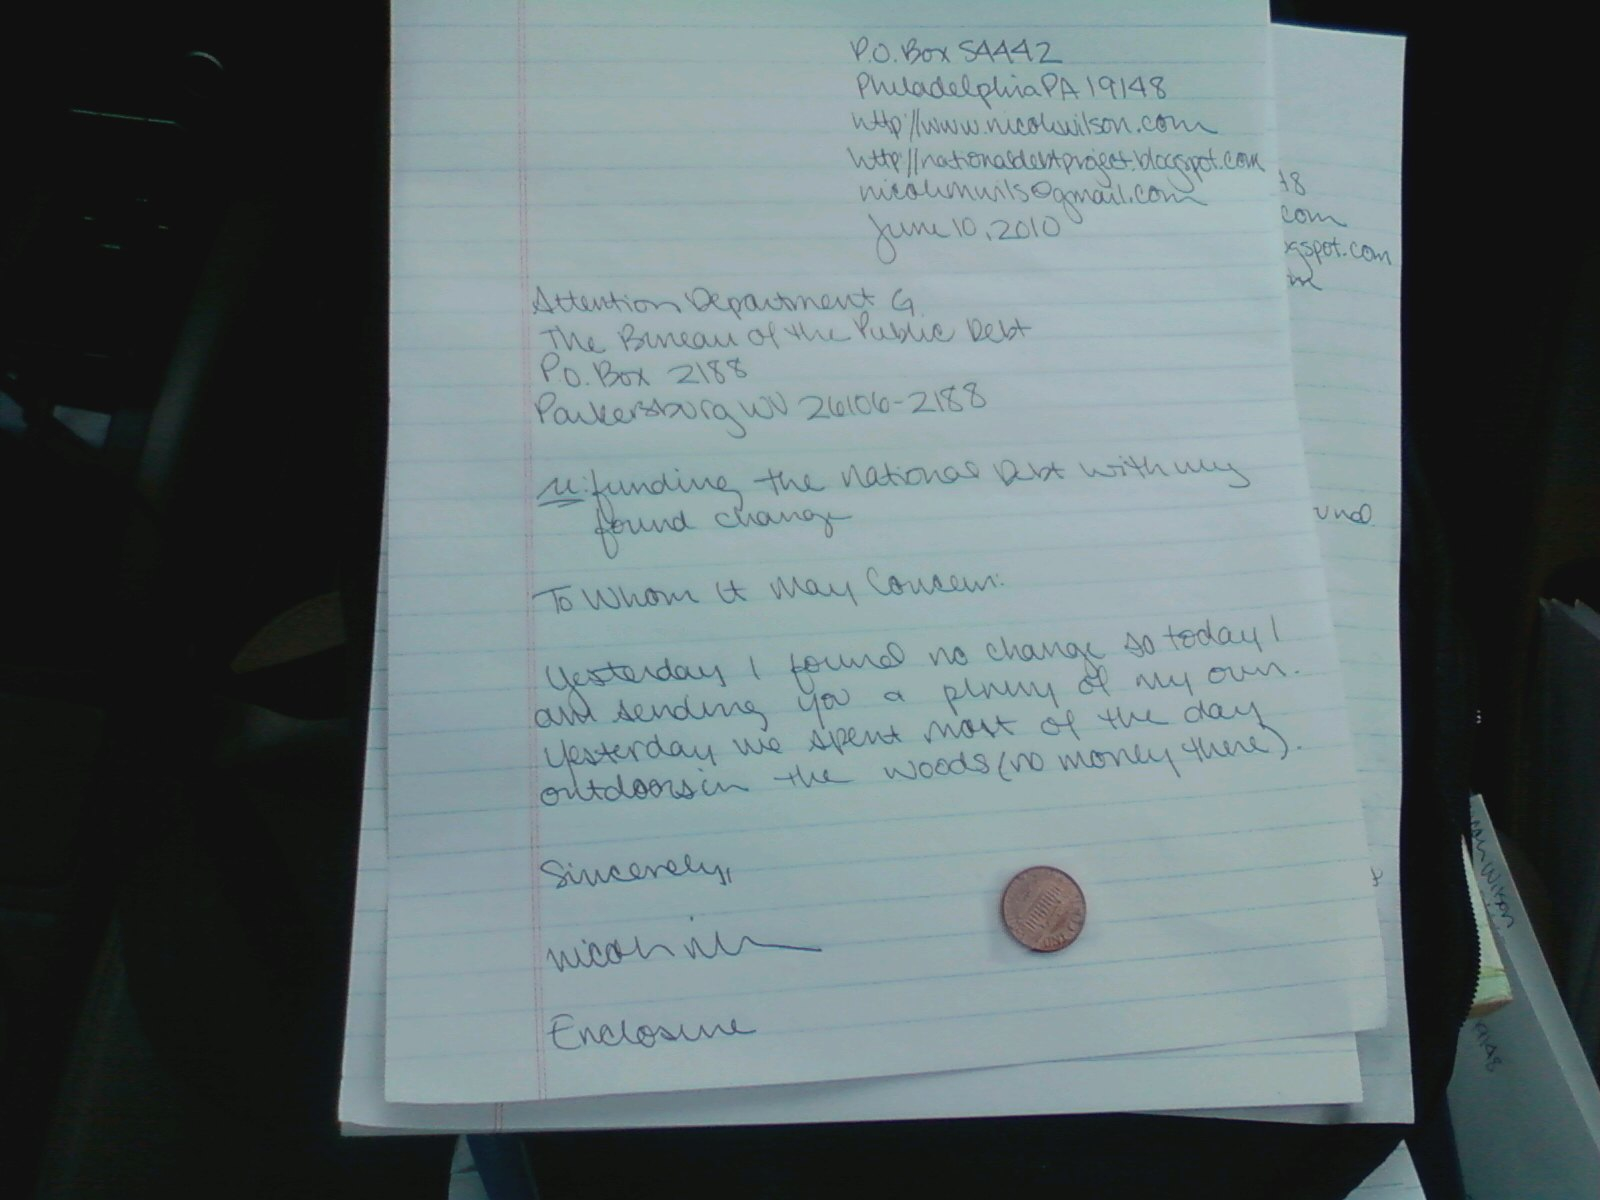 P.O. Box 54442
Philadelphia PA 19148
http://www.nicolewilson.com
http://nationaldebtproject.blogspot.com
nicolemwils@gmail.com
June 10, 2010
Attention Department G
The Bureau of the Public Debt
P.O. Box 2188
Parkersburg WV 26106-2188
re: funding the National Debt with my
found change
To Whom It May Concern:
Yesterday I found no change so today I
am sending you a penny of my own.
Yesterday we spent most of the day
outdoors in the woods (no money there).
Sincerely,
Enclosure
48
com
ogspot.com
ound
Wilson
19148
ONE CENT